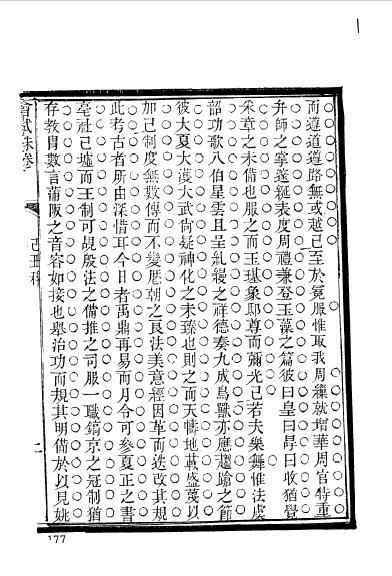 1
而遵道遵路無或越已至於冕服惟取我周纁就增華周官特重
弁師之掌綖表度周禮兼登玉藻之篇彼曰皇曰冔曰收猶覺
采章之未備也服之而玉瑱象邸尊而彌光已若夫樂舞惟法虞
韶功歌八伯星雲且呈糺縵之祥德奏九成鳥獸亦應趨蹌之節
彼大夏大濩大武尚疑神化之未臻也則之而天幬地載盛蔑以
加已制度無數傳而不變歷朝之良法美意經因革而迭改其規
此考古者所由深惜耳今日者禹鼎再易而月令可參夏正之書
亳社已墟而王制可覘殷法之備推之司服一職鎬京之冠制猶
存教胄數言蒲阪之音容如接也舉治功而規其明備於以見姚
會試硃卷 己丑科 二
177